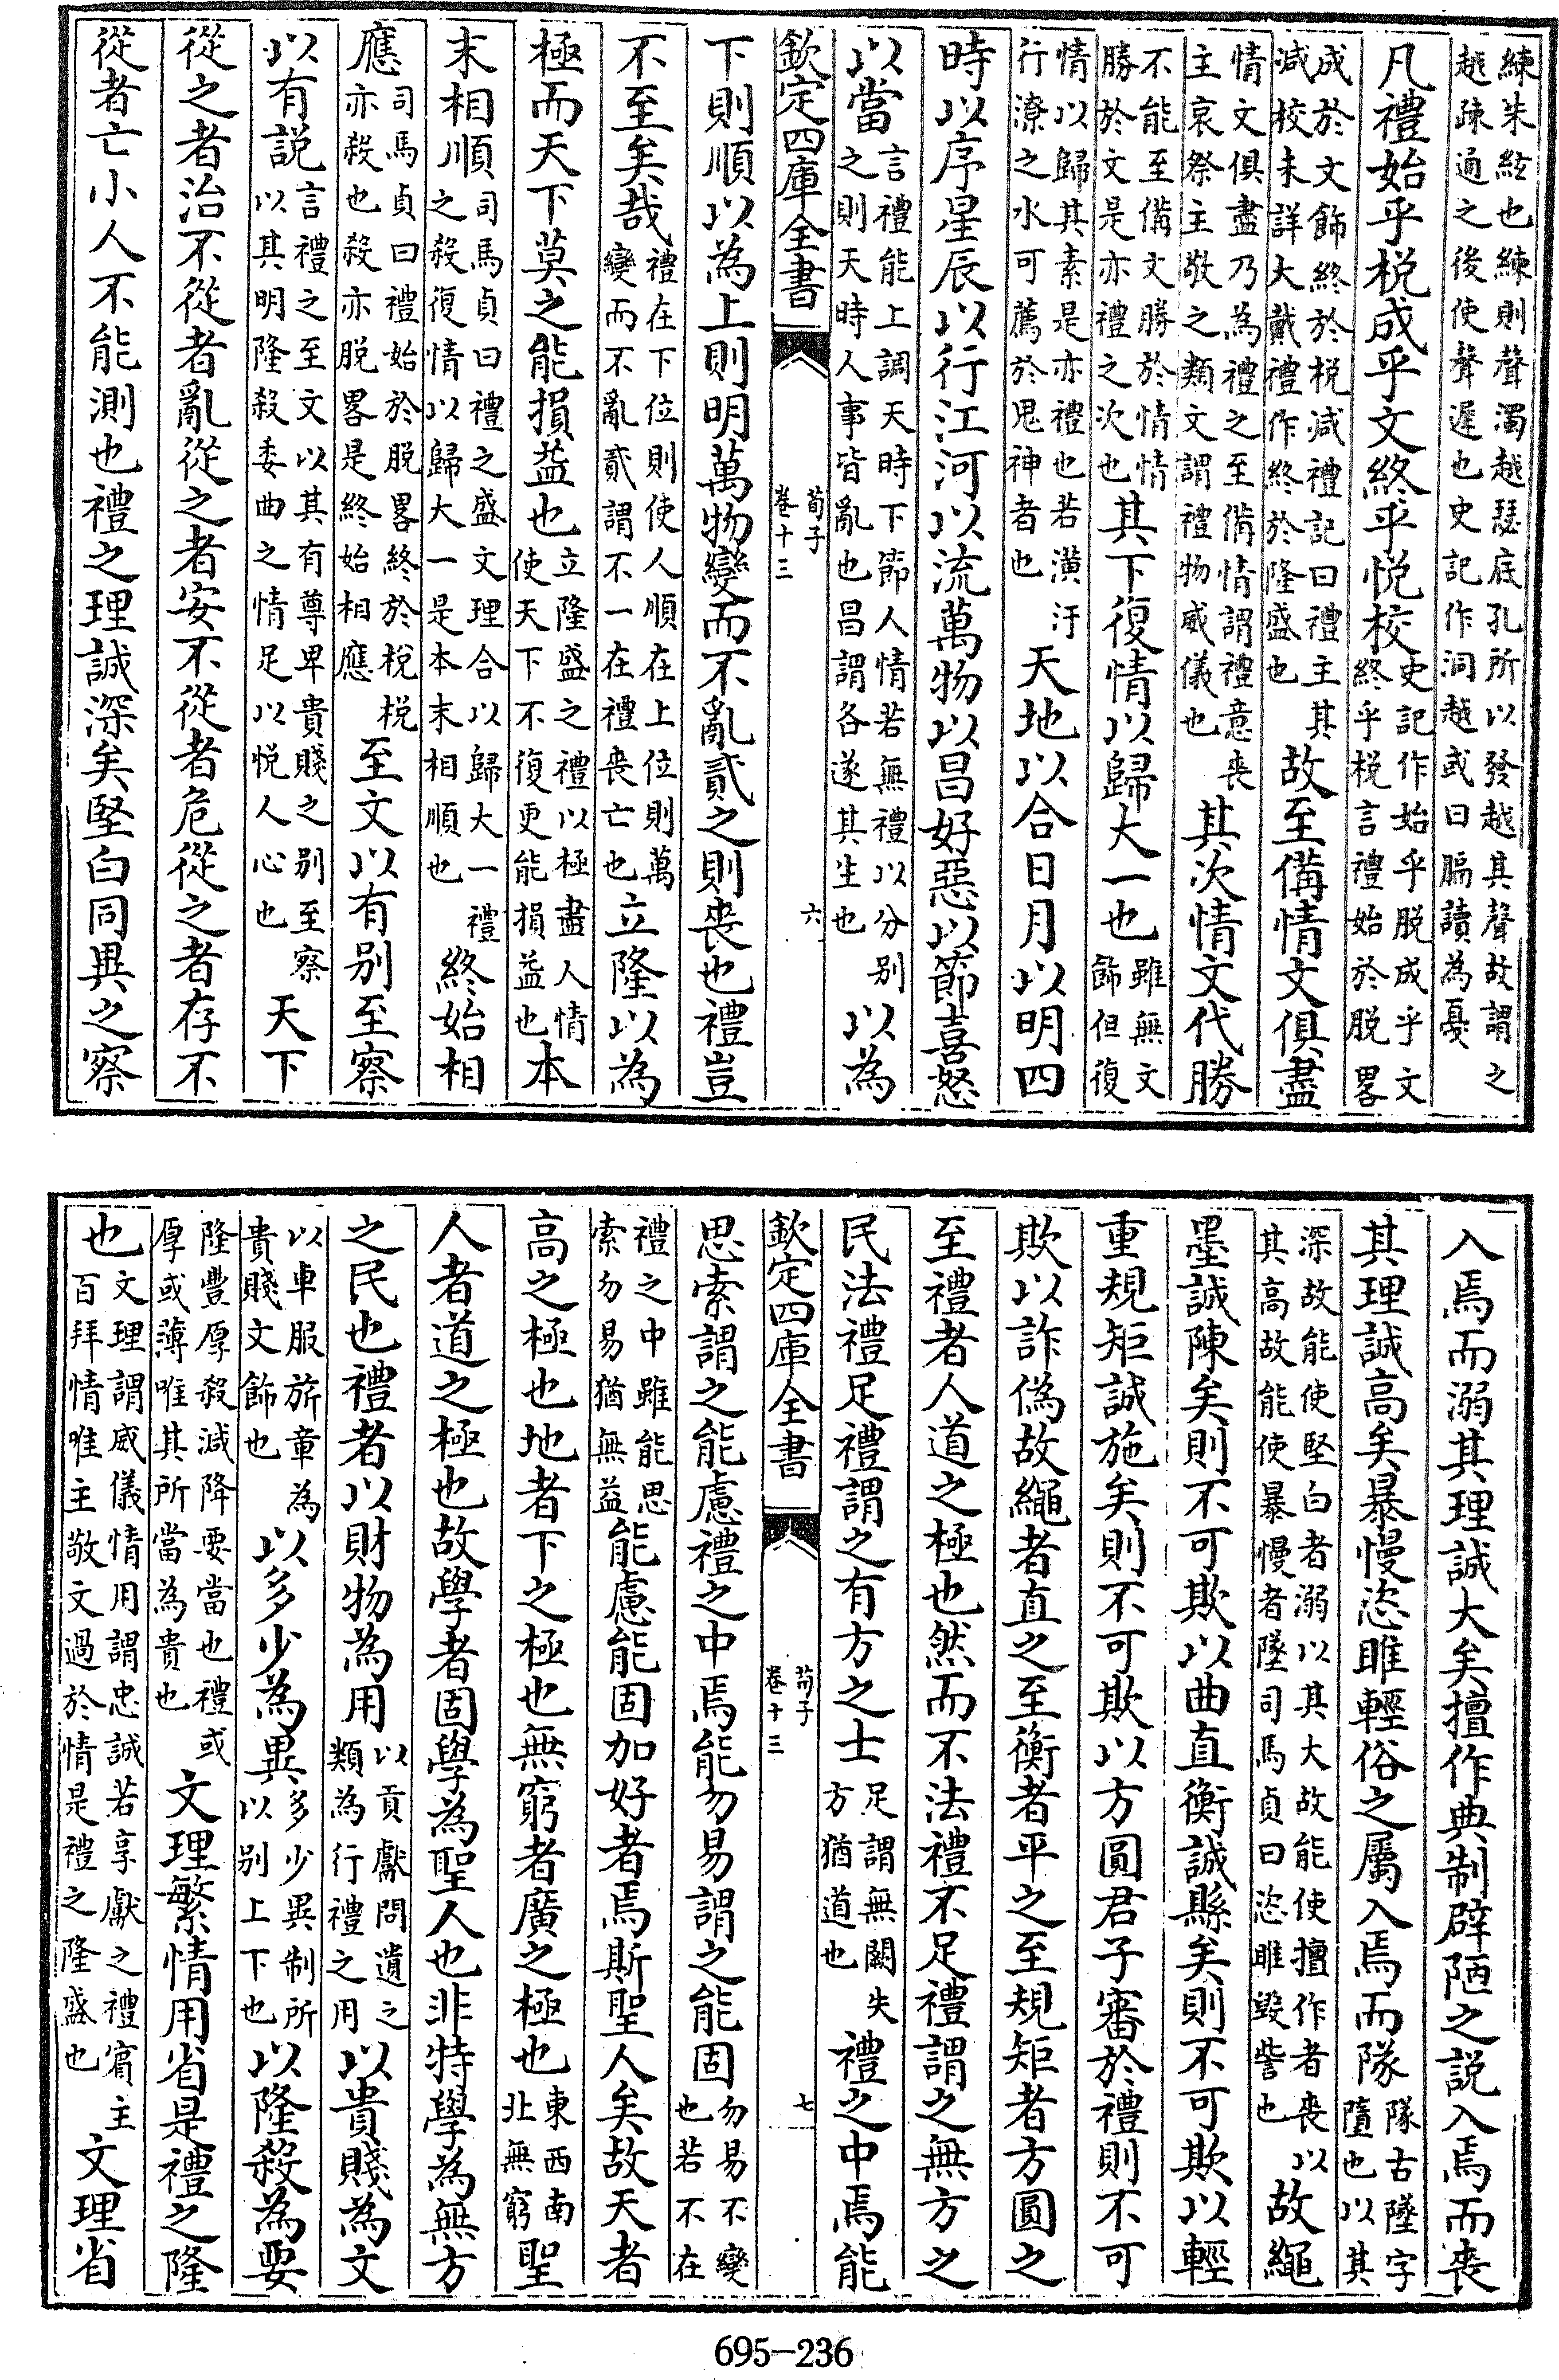 練朱絃也練則聲濁越瑟底孔所以發越其聲故謂之
越疎通之後使聲遲也史記作洞越或曰膈讀為戞
凡禮始乎梲成乎文終乎悅校史記作始乎脫成乎文終乎梲言禮始於脫畧
成於文飾終於梲减禮記曰禮主其减校未詳大戴禮作終於隆盛也故至備情文俱盡
情文俱盡乃為禮之至備情謂禮意喪主哀祭主敬之類文謂禮物威儀也其次情文代勝
不能至備文勝於情情勝於文是亦禮之次也其下復情以歸大一也雖無文飾但復
情以歸其素是亦禮也若潢汙行潦之水可薦於鬼神者也天地以合日月以明四
時以序星辰以行江河以流萬物以昌好惡以節喜怒
以當言禮能上調天時下節人情若無禮以分别之則天時人事皆亂也昌謂各遂其生也以為
欽定四庫全書 荀子 卷十三 六
下則順以為上則明萬物變而不亂貳之則喪也禮豈
不至矣哉禮在下位則使人順在上位則萬變而不亂貳謂不一在禮喪亡也立隆以為
極而天下莫之能損益也立隆盛之禮以極盡人情使天下不復更能損益也本
末相順司馬貞曰禮之盛文理合以歸大一禮之殺復情以歸大一是本末相順也終始相
應司馬貞曰禮始於脫畧終於梲梲亦殺也殺亦脫畧是終始相應至文以有别至察
以有説言禮之至文以其有尊卑貴賤之别至察以其明隆殺委曲之情足以悅人心也天下
從之者治不從者亂從之者安不從者危從之者存不
從者亡小人不能測也禮之理誠深矣堅白同異之察
入焉而溺其理誠大矣擅作典制辟陋之説入焉而喪
其理誠高矣暴慢恣睢輕俗之屬入焉而隊隊古墜字墮也以其
深故能使堅白者溺以其大故能使擅作者喪以其高故能使暴慢者墜司馬貞曰恣睢毁訾也故繩
墨誠陳矣則不可欺以曲直衡誠縣矣則不可欺以輕
重規矩誠施矣則不可欺以方圓君子審於禮則不可
欺以詐偽故繩者直之至衡者平之至規矩者方圓之
至禮者人道之極也然而不法禮不足禮謂之無方之
民法禮足禮謂之有方之士足謂無闕失方猶道也禮之中焉能
欽定四庫全書 荀子 卷十三 七
思索謂之能慮禮之中焉能勿易謂之能固勿易不變也若不在
禮之中雖能思索勿易猶無益能慮能固加好者焉斯聖人矣故天者
高之極也地者下之極也無窮者廣之極也東西南北無窮聖
人者道之極也故學者固學為聖人也非特學為無方
之民也禮者以財物為用以貢獻問遺之類為行禮之用以貴賤為文
以車服旂章為貴賤文飾也以多少為異多少異制所以别上下也以隆殺為要
隆豐厚殺減降要當也禮或厚或薄唯其所當為貴也文理繁情用省是禮之隆
也文理謂威儀情用謂忠誠若享獻之禮賓主百拜情唯主敬文過於情是禮之隆盛也文理省
695-236